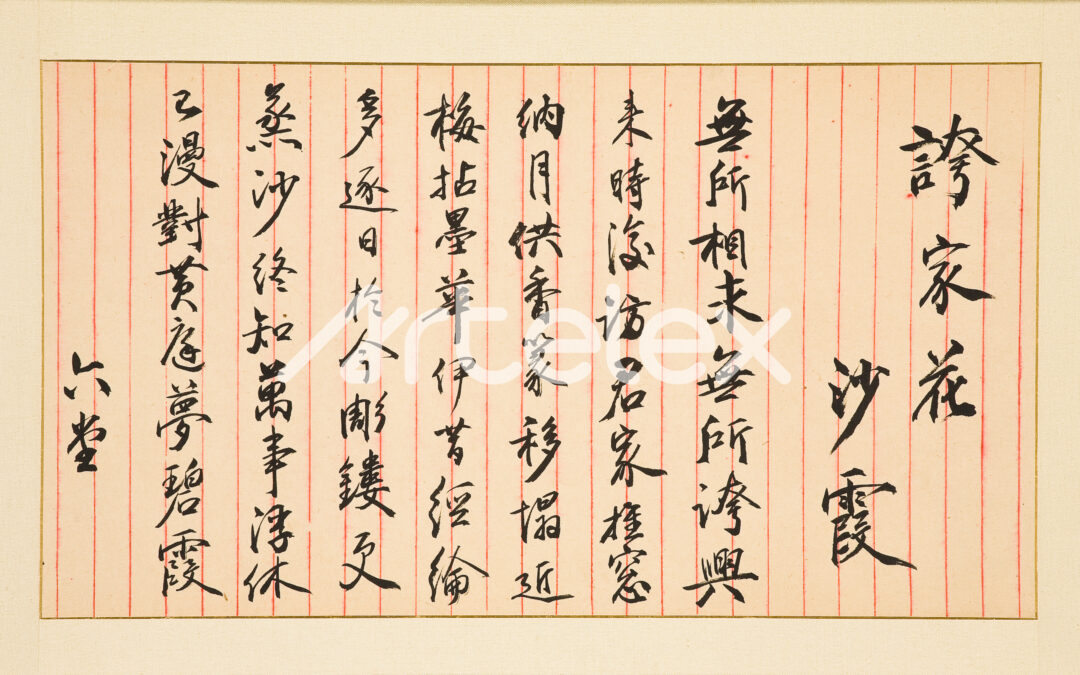 誇家花
沙霞
無所相求無所誇興
来時復訪君家推窓
納月供香篆移榻近
梅拈墨華伊昔經綸
多逐日於今彫鏤更
蒸沙終知萬事渾休
已漫對黄庭夢碧霞
六堂
Artelex